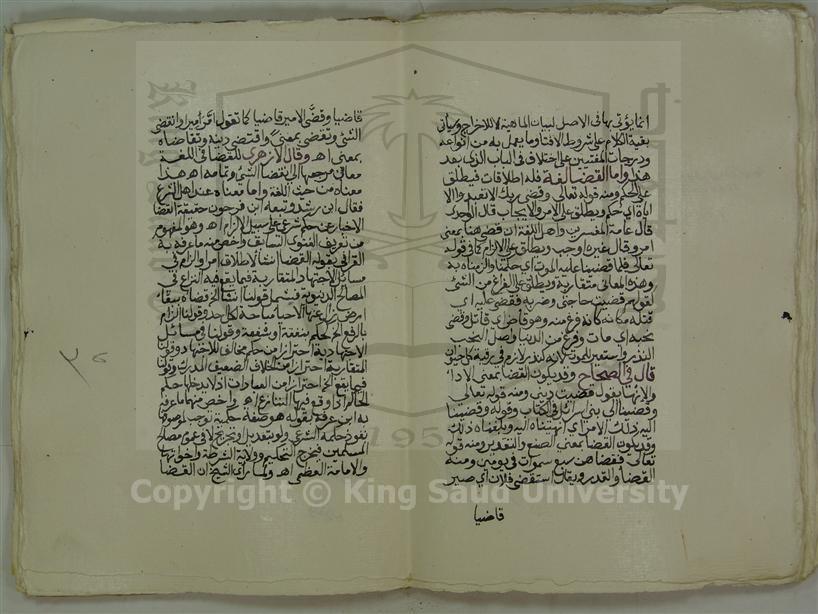 انما يؤتى بها فى الاصل لبيان الماهية لا للاخراج وياتى
بقية الكلام على شروط الافتاء وما يعمل به من انواعه
ودرجات المفتين على اختلاف فى الباب الذى بعد
هذا واما القضا لغة فله اطلاقات فيطلق
على الحكم ومنه قوله تعالى وقضى ربك الا تعبدوا الا
اياه اى حكم ويطلق على الامر والايجاب قال الواحدى
قال عامة المفسرين واهل اللغة ان قضى هنا بمعنى
امر وقال غيره اوجب ويطلق على الالزام كما فى قوله
تعالى فلما قضينا عليه الموت اى حكمنا والزمناه به
وهذه المعانى متقاربة ويطلق على الفراغ من الشئ
لقولهم قضيت حاجتى وضربه فقضى عليه اى
قتله معناه كانه فرغ منه وهو قاض اى قاتل وقضى
نحبه اى مات وفرغ من الدنيا واصل النحب
النذر واستعير للموت لانه كنذر لازم فى رقبة كل حيوان
قال فى الصحاح وقد يكون القضا بمعنى الادا
والانها يقول قضيت دينى ومنه قوله تعالى
وقضينا الى بنى اسرائيل فى الكتاب وقوله وقضينا
اليه ذلك الامر اى انهيناه اليه وبلغناه ذلك
وقد يكون القضا بمعنى الصنع والتقدير ومنه قوله
تعالى فقضاهن سبع سموات فى يومين ومنه
القضا والقدر ويقال استقضى فلان اى صير
قاضيا
قاضيا وقضّى الامير قاضيا كما تقول امّر اميرا وانقضى
الشئ وتقضى بمعنى واقتضى دينه وتقاضاه
بمعنى اه وقال الازهرى للقضا فى اللغة
معانى مرجعها الى انقضا الشئ وتمامه اه هذا
معناه من حيث اللغة واما معناه عند اهل الشرع
فقال ابن رشد وتبعه ابن فرحون حقيقة القضا
الاخبار عن حكم شرعى على سبيل الالزام اه وهو المفهوم
من تعريف الفتوى السابق واخص منه ما عرفه به
القرافى بقوله القضا انشا لاطلاق امر او الزام فى
مسائل الاجتهاد المتقاربة فيما يقع فيه النزاع فى
المصالح الدنيوية فيشمل قولنا انشا الخ قضاه ببقا
ارض زال عنها الاحيا مباحة لكل احد وقولنا الزام
بالرفع الخ حكم بنفقة او شفعة وقولنا فى مسائل
الاجتهادية احترازا من حكم مخالف للاجتهاد وقولنا
المتقاربة احترازا من الخلاف الضعيف المدرك وقولنا
فيما يقع الخ احترازا من العبادات اذ لا يدخلها حكم
الحاكم اذا وقع فيها التنازع اه واخص منهما ما عرفه
به ابن عرفه بقوله هو صفة حكمية توجب لموصوفها
نفوذ حكمه الشرعى ولو بتعديل او تجريح لا فى عموم مصالح
المسلمين فيخرج التحكيم وولاية الشرطة واخواتها
والامامة العظمى اه ولما راى الشيخ ان القضا
Copyright © King Saud University
195